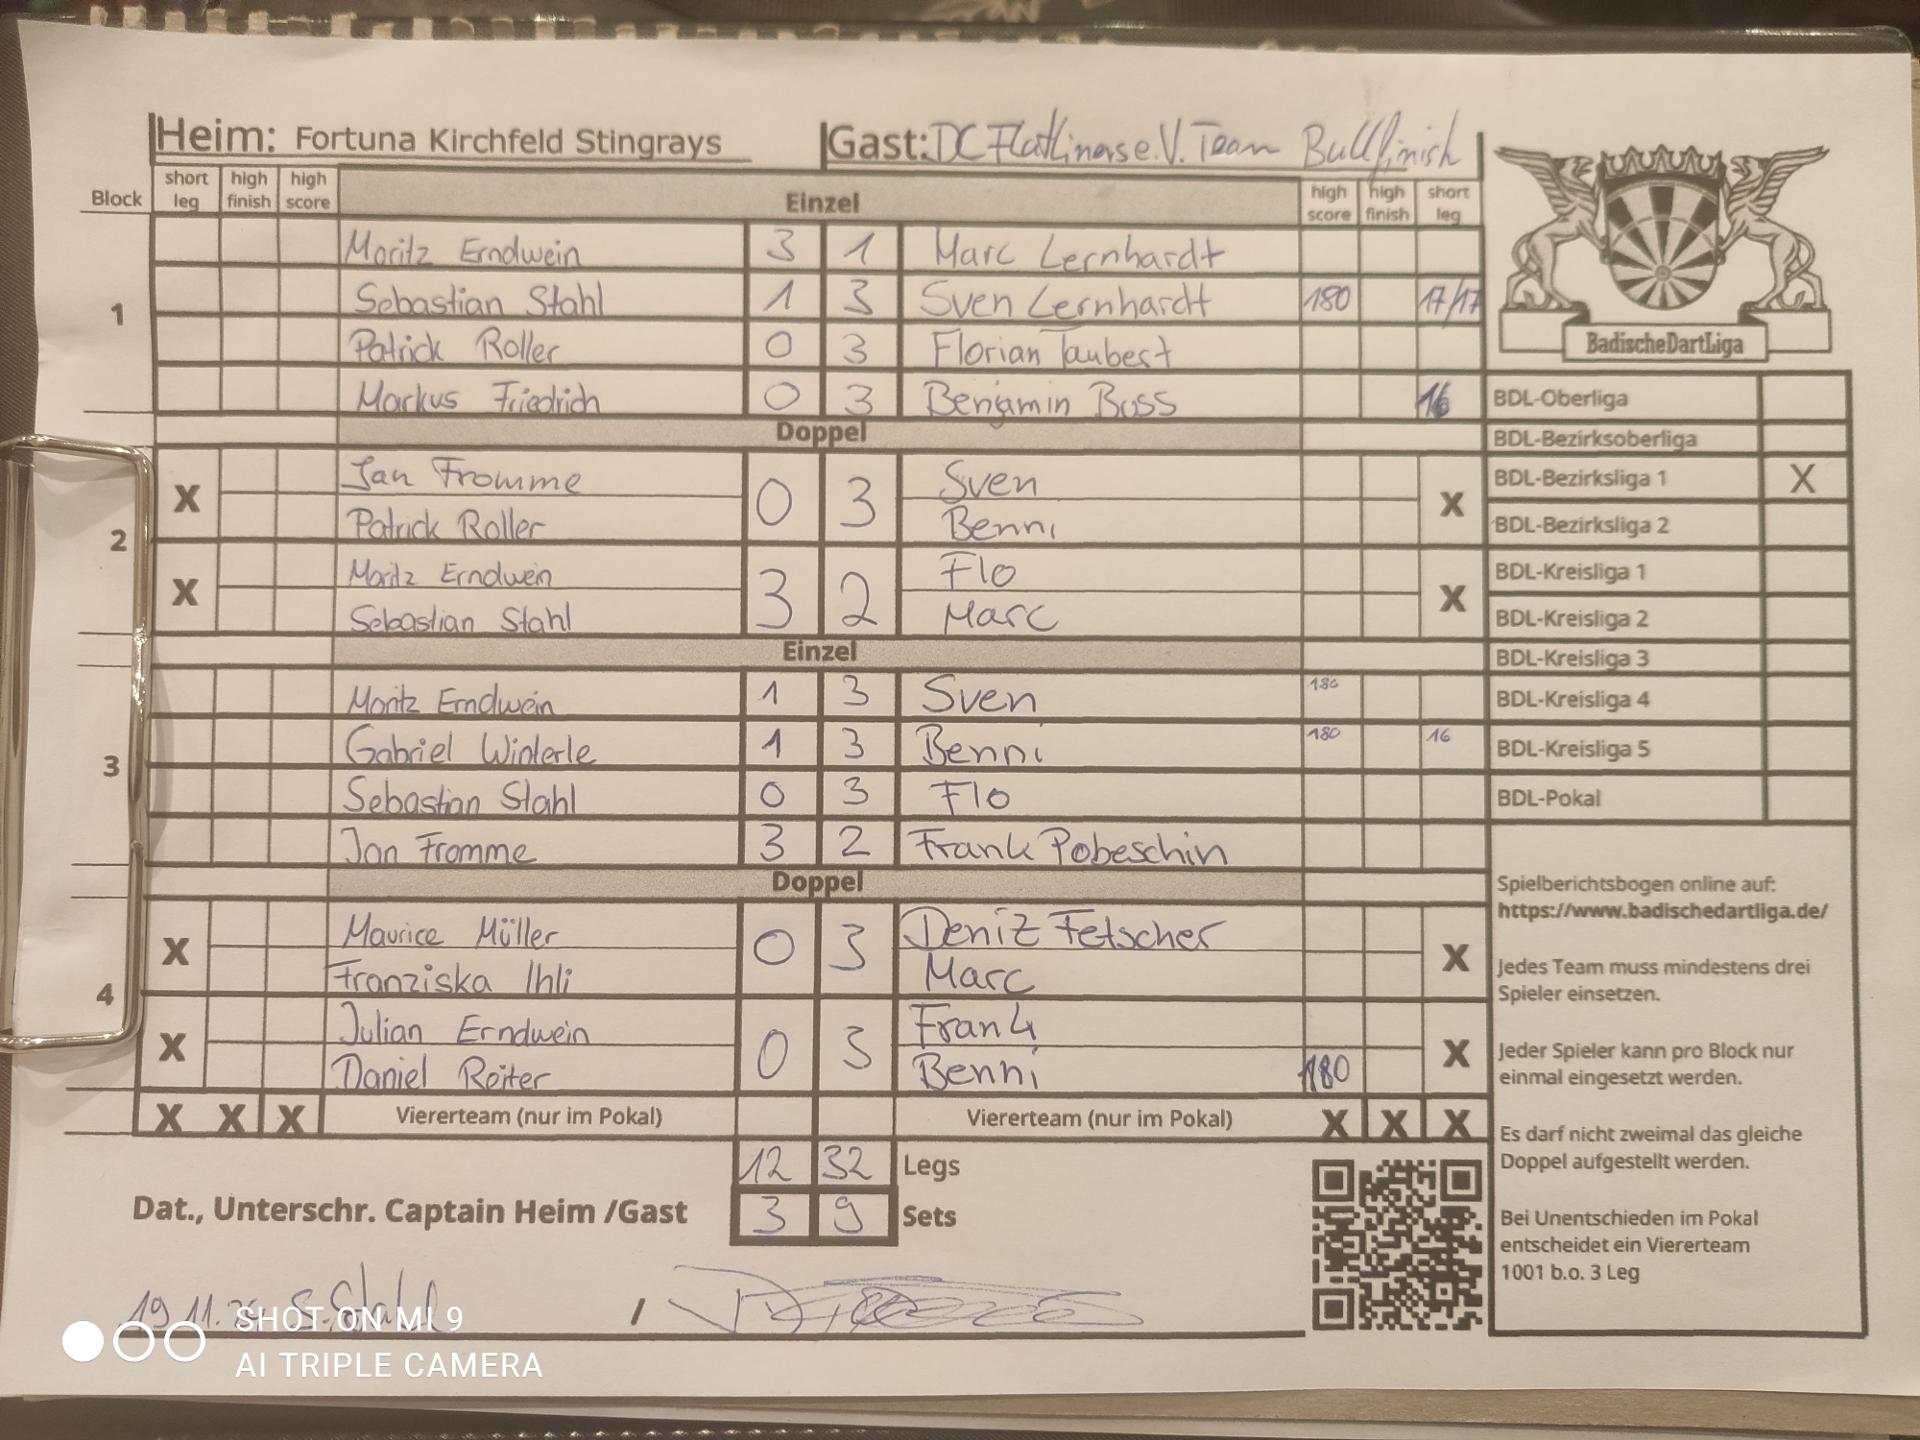 Heim: Fortuna Kirchfeld Stingrays Gast: DC Flatliners e.V. Team Bullfinish
Block short leg high finish high score Einzel high score high finish short leg
1
Moritz Erndwein 3 1 Marc Lernhardt
Sebastian Stahl 1 3 Sven Lernhardt 180 17/17
Patrick Roller 0 3 Florian Taubert
Markus Friedrich 0 3 Benjamin Buss 16
Doppel
2
X Jan Fromme 0 3 Sven X
Patrick Roller Benni
X Moritz Erndwein 3 2 Flo X
Sebastian Stahl Marc
Einzel
3
Moritz Erndwein 1 3 Sven 180
Gabriel Winterle 1 3 Benni 180 16
Sebastian Stahl 0 3 Flo
Jan Fromme 3 2 Frank Pobeschin
Doppel
4
X Maurice Müller 0 3 Deniz Fetscher X
Franziska Ihli Marc
X Julian Erndwein 0 3 Frank X
Daniel Reiter Benni 180
X X X Viererteam (nur im Pokal) Viererteam (nur im Pokal) X X X
12 32 Legs
Dat., Unterschr. Captain Heim /Gast 3 9 Sets
19.11. S. Stahl /
BadischeDartLiga
BDL-Oberliga
BDL-Bezirksoberliga
BDL-Bezirksliga 1 X
BDL-Bezirksliga 2
BDL-Kreisliga 1
BDL-Kreisliga 2
BDL-Kreisliga 3
BDL-Kreisliga 4
BDL-Kreisliga 5
BDL-Pokal
Spielberichtsbogen online auf:
https://www.badischedartliga.de/
Jedes Team muss mindestens drei
Spieler einsetzen.
Jeder Spieler kann pro Block nur
einmal eingesetzt werden.
Es darf nicht zweimal das gleiche
Doppel aufgestellt werden.
Bei Unentschieden im Pokal
entscheidet ein Viererteam
1001 b.o. 3 Leg
SHOT ON MI 9
AI TRIPLE CAMERA